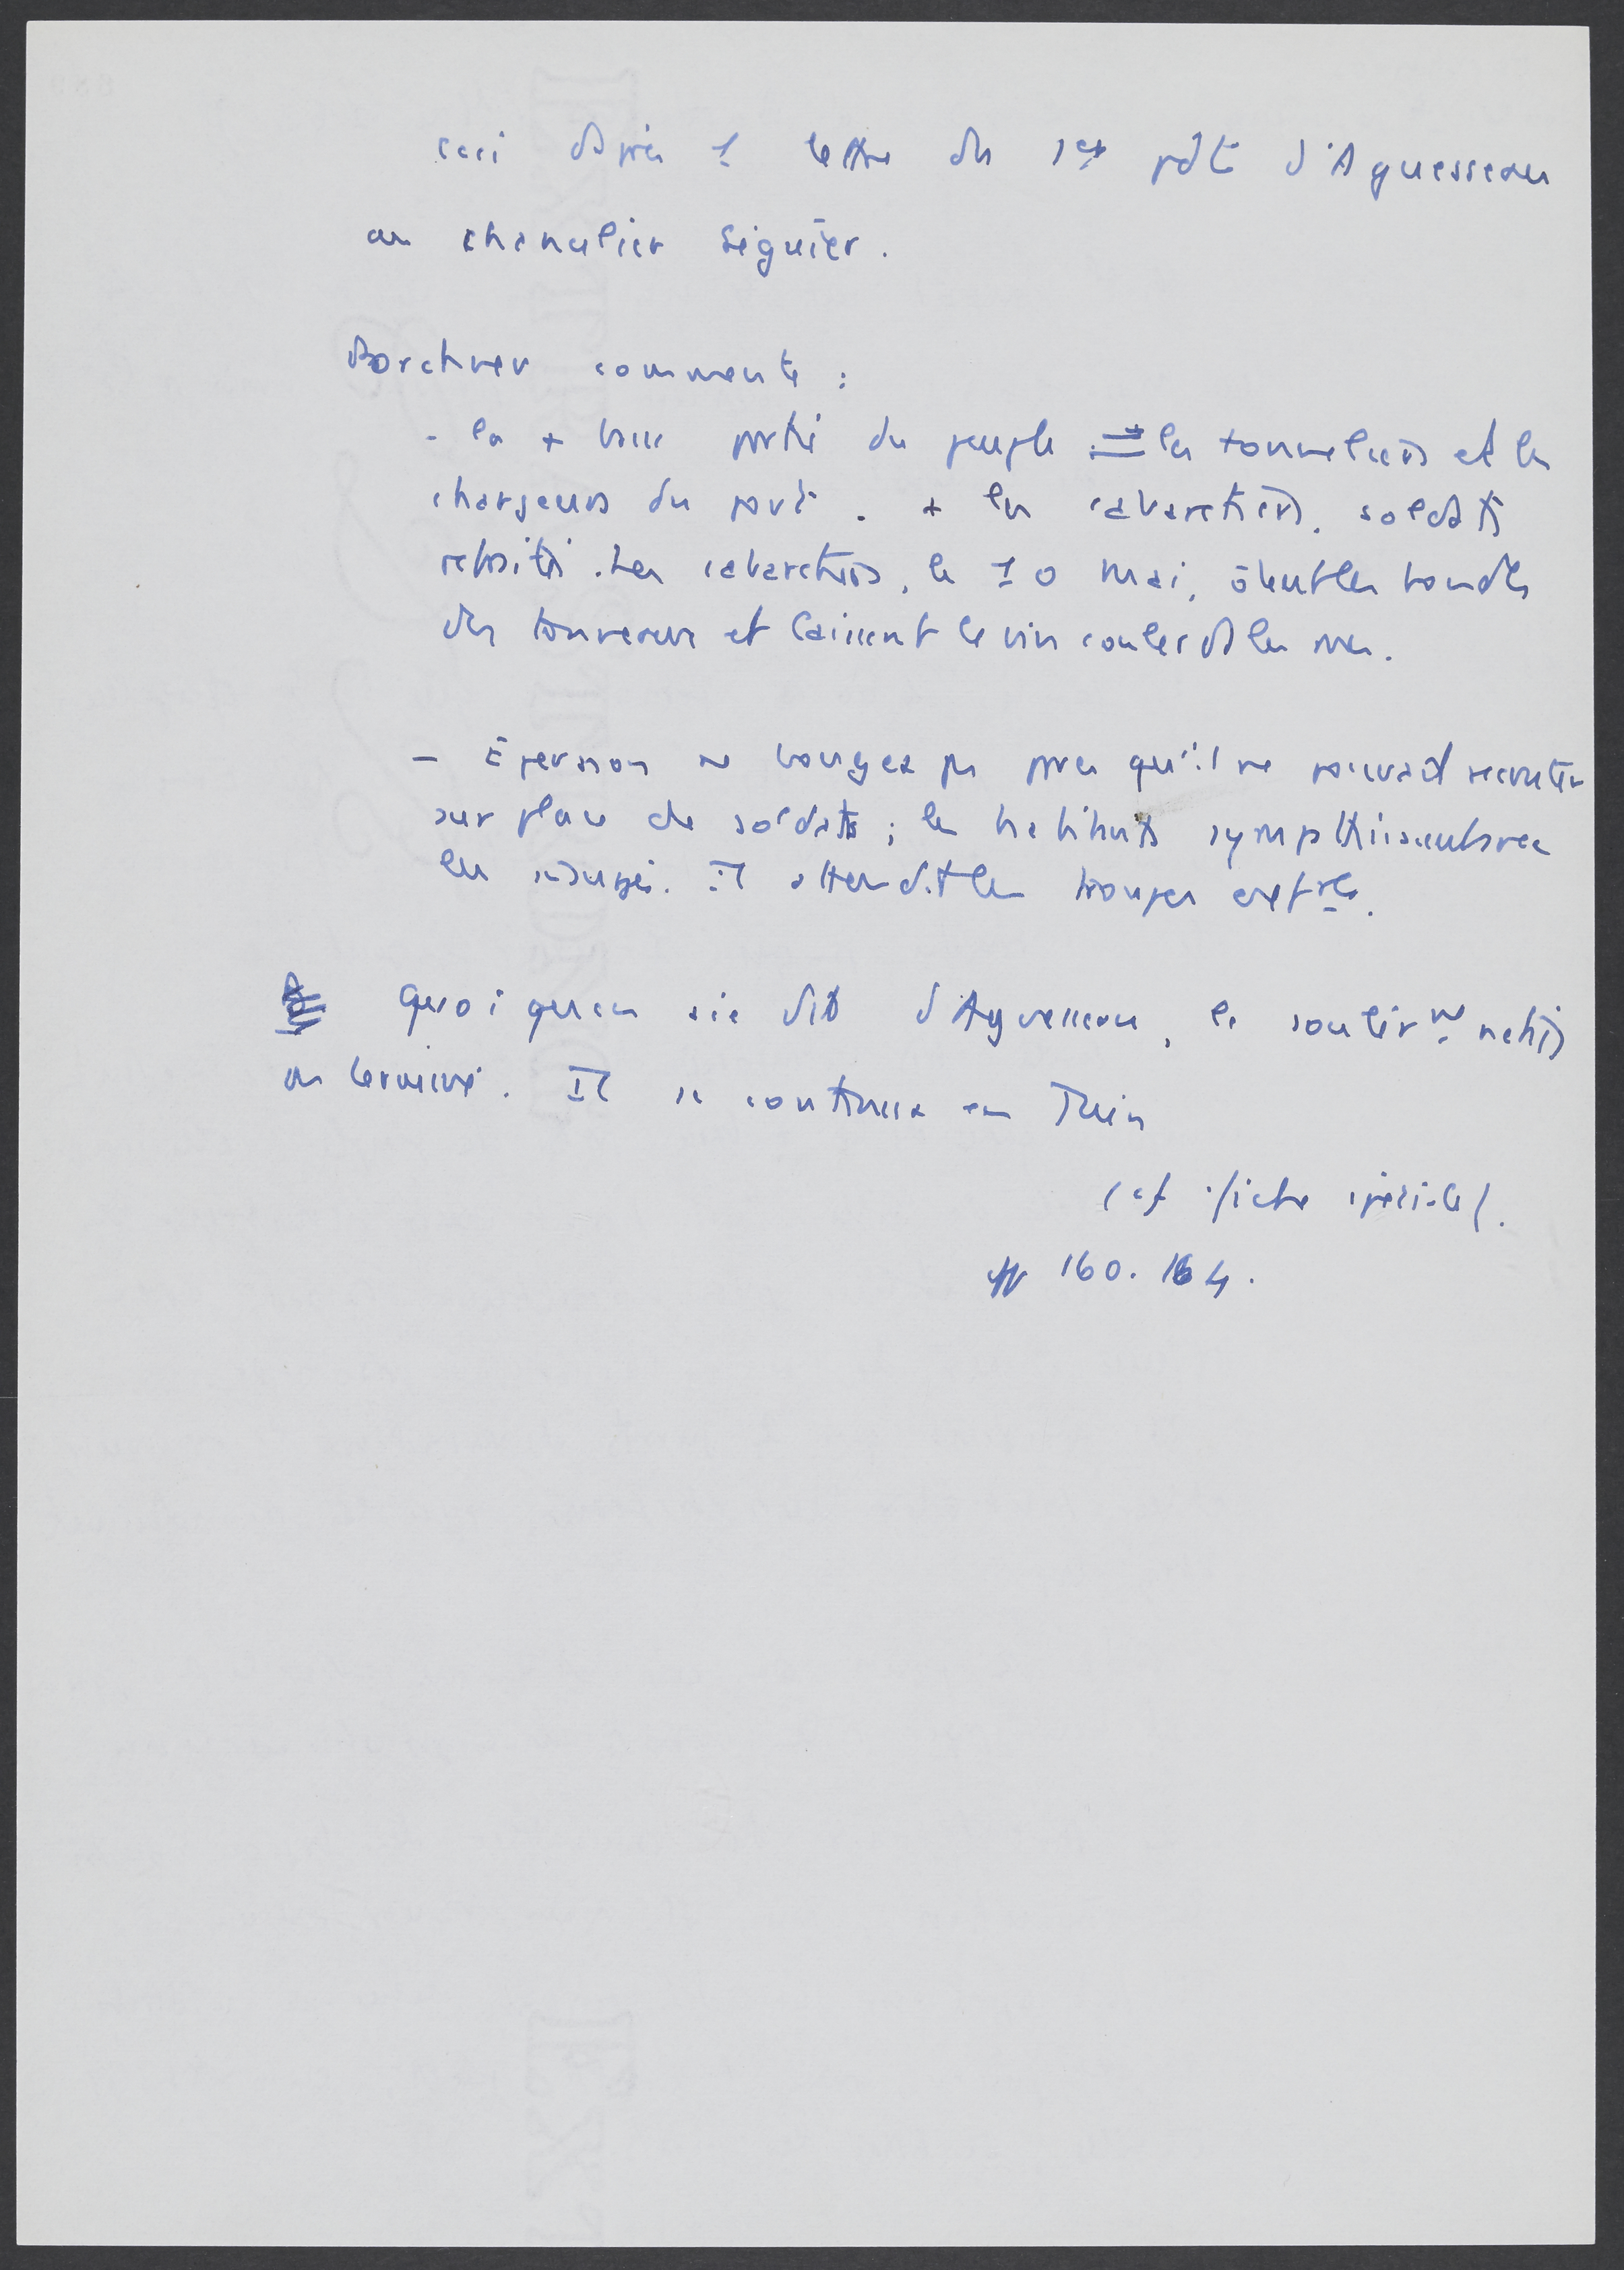 ceci d'après 1 lettre du 1er pdt d'Aguesseau
au chancelier Séguier.
Porchnev commente :
- la + basse partie du peuple = les tonneliers et les
chargeurs du port. + les cabaretiers, soldats
retraités. Les cabaretiers, le 10 mai, ôtent les bondes
des tonneaux et laissent le vin couler ds les rues.
- Épernon ne bougea pas parce qu'il ne pouvait recruter
sur place de soldats ; les habitants sympathisaient avec
les insurgés. Il attendit les troupes
Quoi qu'en aie dit d'Aguesseau, le soulèvt n'était
pas terminé. Il se continua en Juin
(cf fiche spéciale).
pp 160. 164.